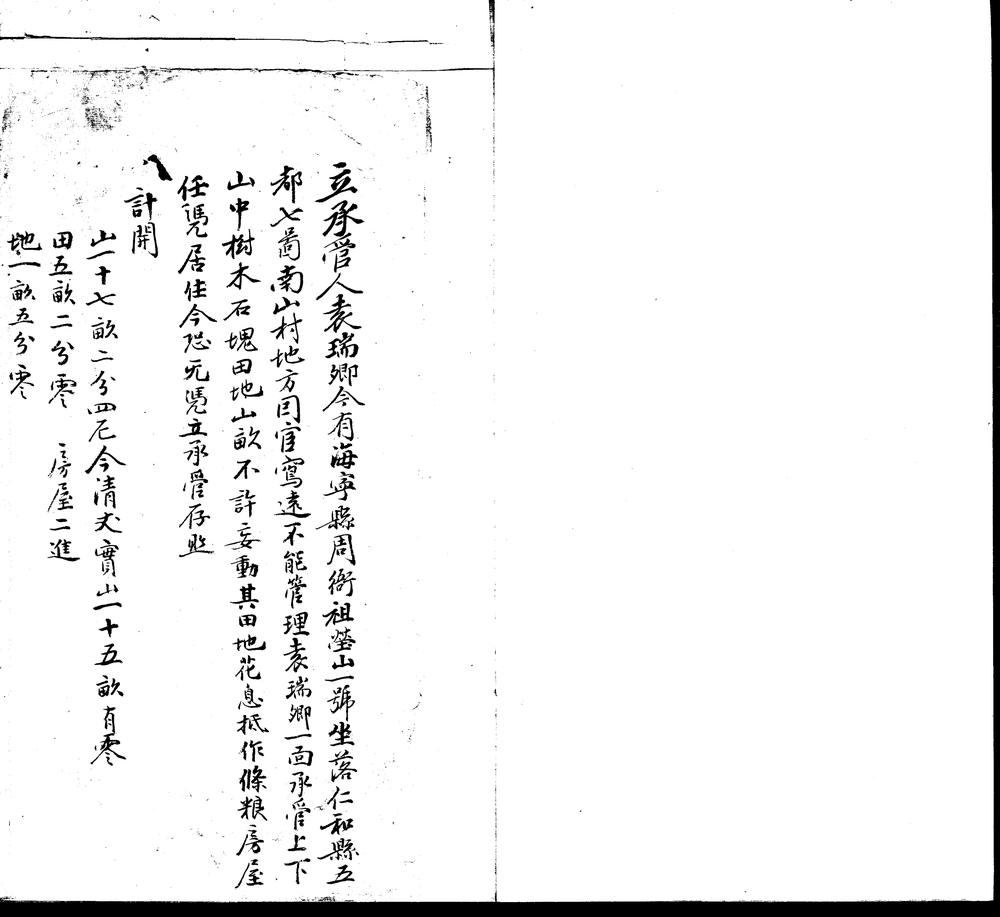 立承管人袁瑞卿今有海寧縣周衙祖塋山一號坐落仁和縣五
都七啚南山村地方因官寫遠不能管理袁瑞卿一面承管上下
山中樹木石塊田地山畝不許妄動其田地花息抵作條粮房屋
任凴居住今恐无凴立承管存照
計開
山一十七畝二分四厘今清丈實山一十五畝有零
田五畝二分零　房屋二進
地一畝五分零